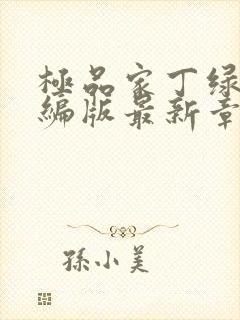 極品家丁绿
编版最新章
孫小美